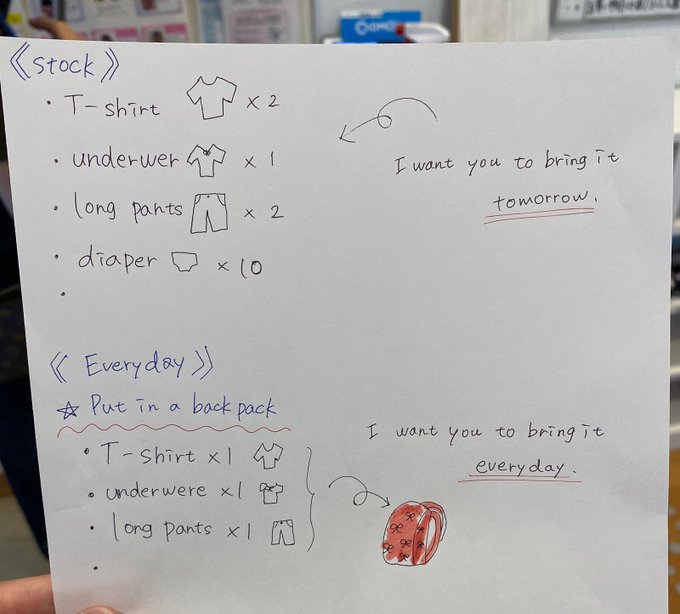 《Stock》
・T-shirt × 2
・underwer × 1
・long pants × 2
・diaper × 10
・
I want you to bring it
tomorrow.
《Everyday》
☆ Put in a back pack
・T-shirt ×1
・underwere ×1
・long pants ×1
・
I want you to bring it
everyday.